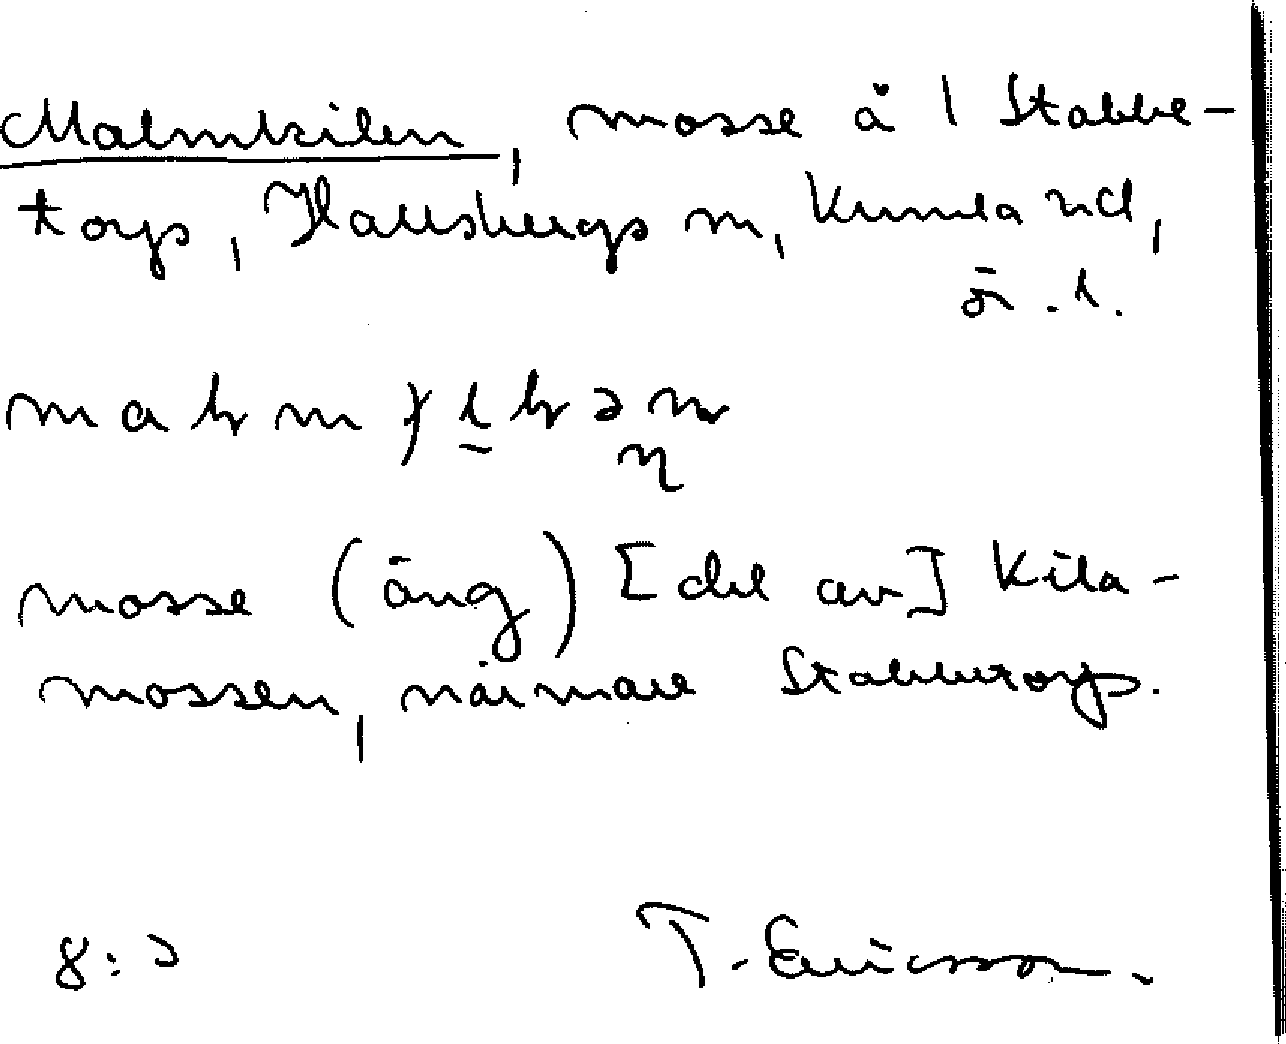 Malmkilen, mosse å 1 Stabbe-
torp, Hallsbergs sn, Kumla hd,
ör. l.
mosse (äng) [del av] Kila-
mossen, närmare Stabbetorp.
T. Ericsson.